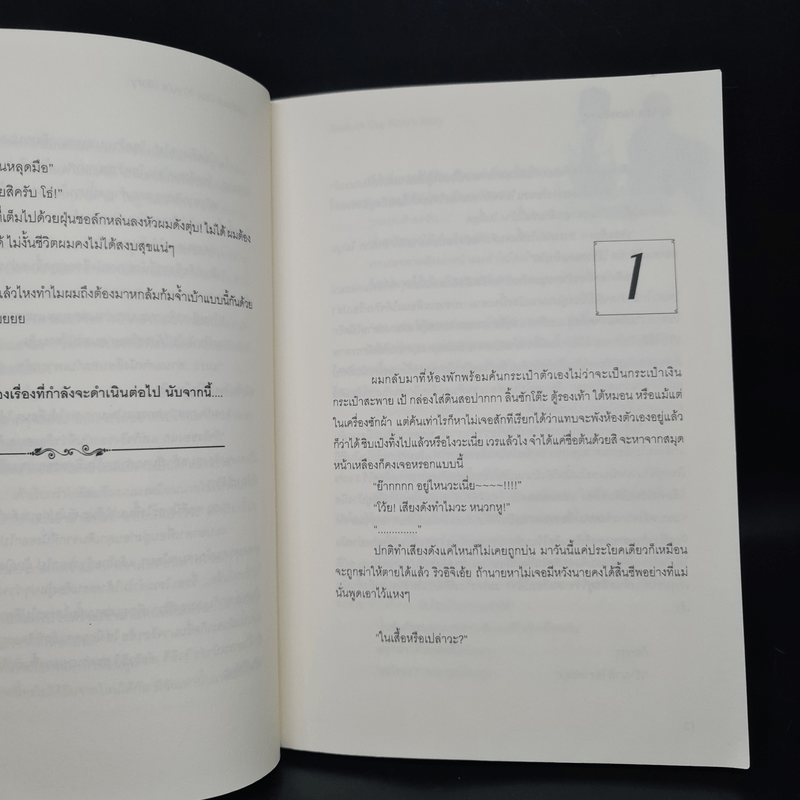 นหลุดมือ"
ยสิครับ โธ่!"
ที่เต็มไปด้วยฝุ่นซอล์กหล่นลงหัวผมดังตุ่บ! ไม่ได้ ผมต้อง
ด้ ไม่งั้นชีวิตผมคงไม่ได้สงบสุขแน่ๆ
แล้วไหงทำไมผมถึงต้องมาหกล้มก้มจ้ำเบ้าแบบนี้กันด้วย
ยยยย
องเรื่องที่กำลังจะดำเนินต่อไป นับจากนี้....
1
ผมกลับมาที่ห้องพักพร้อมค้นกระเป๋าตัวเองไม่ว่าจะเป็นกระเป๋าเงิน
กระเป๋าสะพาย เป้ กล่องใส่ดินสอปากกา ลิ้นชักโต๊ะ ตู้รองเท้า ใต้หมอน หรือแม้แต่
ในเครื่องซักผ้า แต่ค้นเท่าไรก็หาไม่เจอสักทีเรียกได้ว่าแทบจะพังห้องตัวเองอยู่แล้ว
ก็ว่าได้ ชิบเป๋งทิ้งไปแล้วหรือไงวะเนี่ย เวรแล้วไง จำได้แค่ชื่อต้นด้วยสิ จะหาจากสมุด
หน้าเหลืองก็คงเจอหรอกแบบนี้
"ย๊ากกกก อยู่ไหนวะเนี่ย~~~~!!!!"
"โว้ย! เสียงดังทำไมวะ หนวกหู!"
"..............."
ปกติทำเสียงดังแค่ไหนก็ไม่เคยถูกบ่น มาวันนี้แค่ประโยคเดียวก็เหมือน
จะถูกฆ่าให้ตายได้แล้ว ริวอิจิเอ้ย ถ้านายหาไม่เจอมีหวังนายคงได้สิ้นชีพอย่างที่แม่
นั่นพูดเอาไว้แหงๆ
"ในเสื้อหรือเปล่าวะ?"